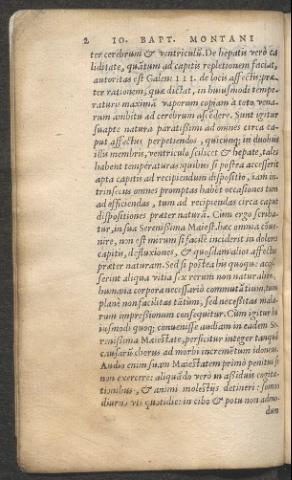 2 IO. BAPT. MONTANI
ter cerebrum & ventriculũ. De hepatis verò ca
liditate, quãtum ad capitis repletionem faciat,
autoritas est Galeni III. de locis affectis: præ
ter rationem, quæ dictat, in huiusmodi tempe
raturis maximã vaporum copiam à toto vena
rum ambitu ad cerebrum ascẽdere. Sunt igitur
suapte natura paratissimi ad omnes circa ca-
put affectus perpetiendos, quicunq; in duobus
illis membris, ventriculo scilicet & hepate, tales
habent temperaturas: quibus si postea accesserit
apta capitis ad recipiendum dispositio, iam in
trinsecus omnes promptas habẽt occasiones tum
ad efficiendas, tum ad recipiendas circa caput
dispositiones præter naturã. Cùm ergo scriba-
tur, in sua Serenissima Maiest. hæc omnia cõue
nire, non est mirum si facilè inciderit in dolores
capitis, defluxiones, & quosdam alios affectus
præter naturam. Sed si postea his quoque acce
serint aliqua vitia sex rerum non naturaliũ,
humana corpora necessariò commutãtium, tum
planè non facilitas tãtùm, sed necessitas mala-
rum impressionum consequitur. Cùm igitur hu
iusmodi quoq; conuenisse audiam in eadem Se
renissima Maiestate, perficitur integer tanquã
causarũ chorus ad morbi incremẽtum idoneus.
Audio enim suam Maiestatem primò penitus se
non exercere: aliquãdo verò in assiduis cogita-
tionibus, & animi molestijs detineri: somno
diurno vti quotidie: in cibo & potu non admo-
dum